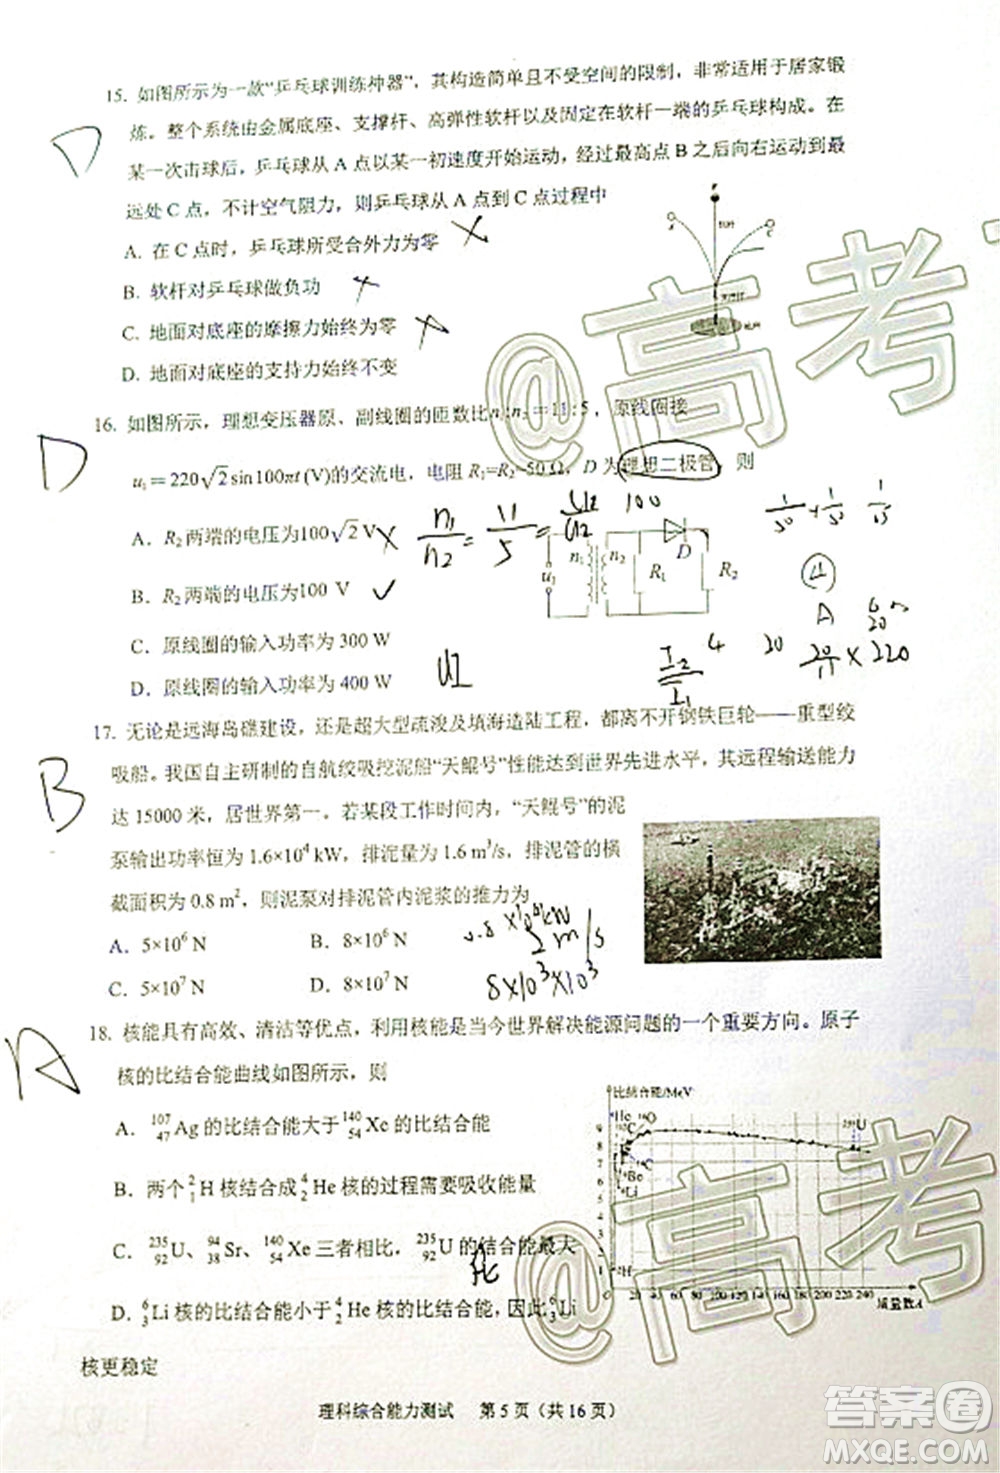 15. 如图所示为一款“乒乓球训练神器”，其构造简单且不受空间的限制，非常适用于居家锻
炼。整个系统由金属底座、支撑杆、高弹性软杆以及固定在软杆一端的乒乓球构成。在
D
某一次击球后，乒乓球从 A 点以某一初速度开始运动，经过最高点 B 之后向右运动到最
远处 C 点，不计空气阻力，则乒乓球从 A 点到 C 点过程中
A. 在 C 点时，乒乓球所受合外力为零
B. 软杆对乒乓球做负功
C. 地面对底座的摩擦力始终为零
D. 地面对底座的支持力始终不变
16. 如图所示，理想变压器原、副线圈的匝数比n₁:n₂=11:5，原线圈接
D
u₁=220√2sin100πt(V)的交流电，电阻 R₁=R₂=50 Ω，D 为理想二极管，则
A. R₂两端的电压为100√2 V
n₁/n₂ = 11/5 = 100
1/50 + 1/50 1/25
u₁ n₁ n₂ R₁ D R₂
B. R₂两端的电压为100 V
4
A
C. 原线圈的输入功率为 300 W
D. 原线圈的输入功率为 400 W
UI
I₂/I₁ 4 20 20/11 × 220
17. 无论是远海岛礁建设，还是超大型疏浚及填海造陆工程，都离不开钢铁巨轮——重型绞
吸船。我国自主研制的自航绞吸挖泥船“天鲲号”性能达到世界先进水平，其远程输送能力
B
达 15000 米，居世界第一。若某段工作时间内，“天鲲号”的泥
泵输出功率恒为 1.6×10⁴ kW，排泥量为 1.6 m³/s，排泥管的横
截面积为 0.8 m²，则泥泵对排泥管内泥浆的推力为
A. 5×10⁶ N B. 8×10⁶ N
2 m/s
C. 5×10⁷ N D. 8×10⁷ N
8×10³×10³
18. 核能具有高效、清洁等优点，利用核能是当今世界解决能源问题的一个重要方向。原子
A
核的比结合能曲线如图所示，则
A. ¹⁰⁷₄₇Ag 的比结合能大于 ¹⁴⁰₅₄Xe 的比结合能
B. 两个 ²₁H 核结合成 ⁴₂He 核的过程需要吸收能量
C. ²³⁵₉₂U、⁹⁴₃₈Sr、¹⁴⁰₅₄Xe 三者相比，²³⁵₉₂U 的结合能最大
D. ⁶₃Li 核的比结合能小于 ⁴₂He 核的比结合能，因此 ⁶₃Li
核更稳定
比结合能/MeV
9
8
7
6
5
4
3
2
1
0 20 40 60 80 100 120 140 160 180 200 220 240
质量数A
理科综合能力测试 第 5 页（共 16 页）
@高考
@高考
答案圈
MXQE.COM